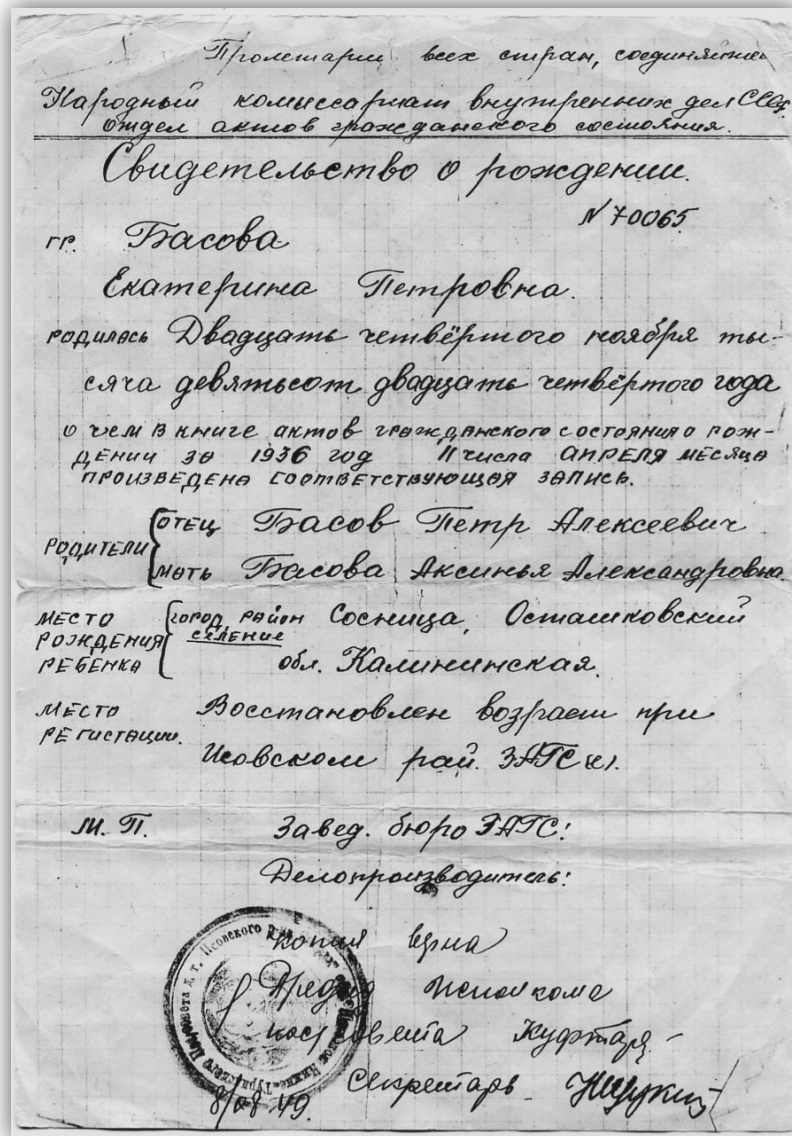 Пролетарии всех стран, соединяйтесь
Народный комиссариат внутренних дел СССР.
отдел актов гражданского состояния.
Свидетельство о рождении.
N 70065
гр. Басова
Екатерина Петровна.
родилась Двадцать четвёртого ноября ты-
сяча девятьсот двадцать четвёртого года
о чем в книге актов гражданского состояния о рож-
дении за 1936 год 11 числа апреля месяца
произведена соответствующая запись.
Родители
отец Басов Петр Алексеевич
мать Басова Аксинья Александровна
место рождения ребенка
город, район селение Сосница, Осташковский
обл. Калининская.
место регистации.
Восстановлен возраст при
Исовском рай. ЗАГСе).
М. П. Завед. бюро ЗАГС:
Делопроизводитель:
копия верна
Исполкома
поссовета
Секретарь
8/08 49.